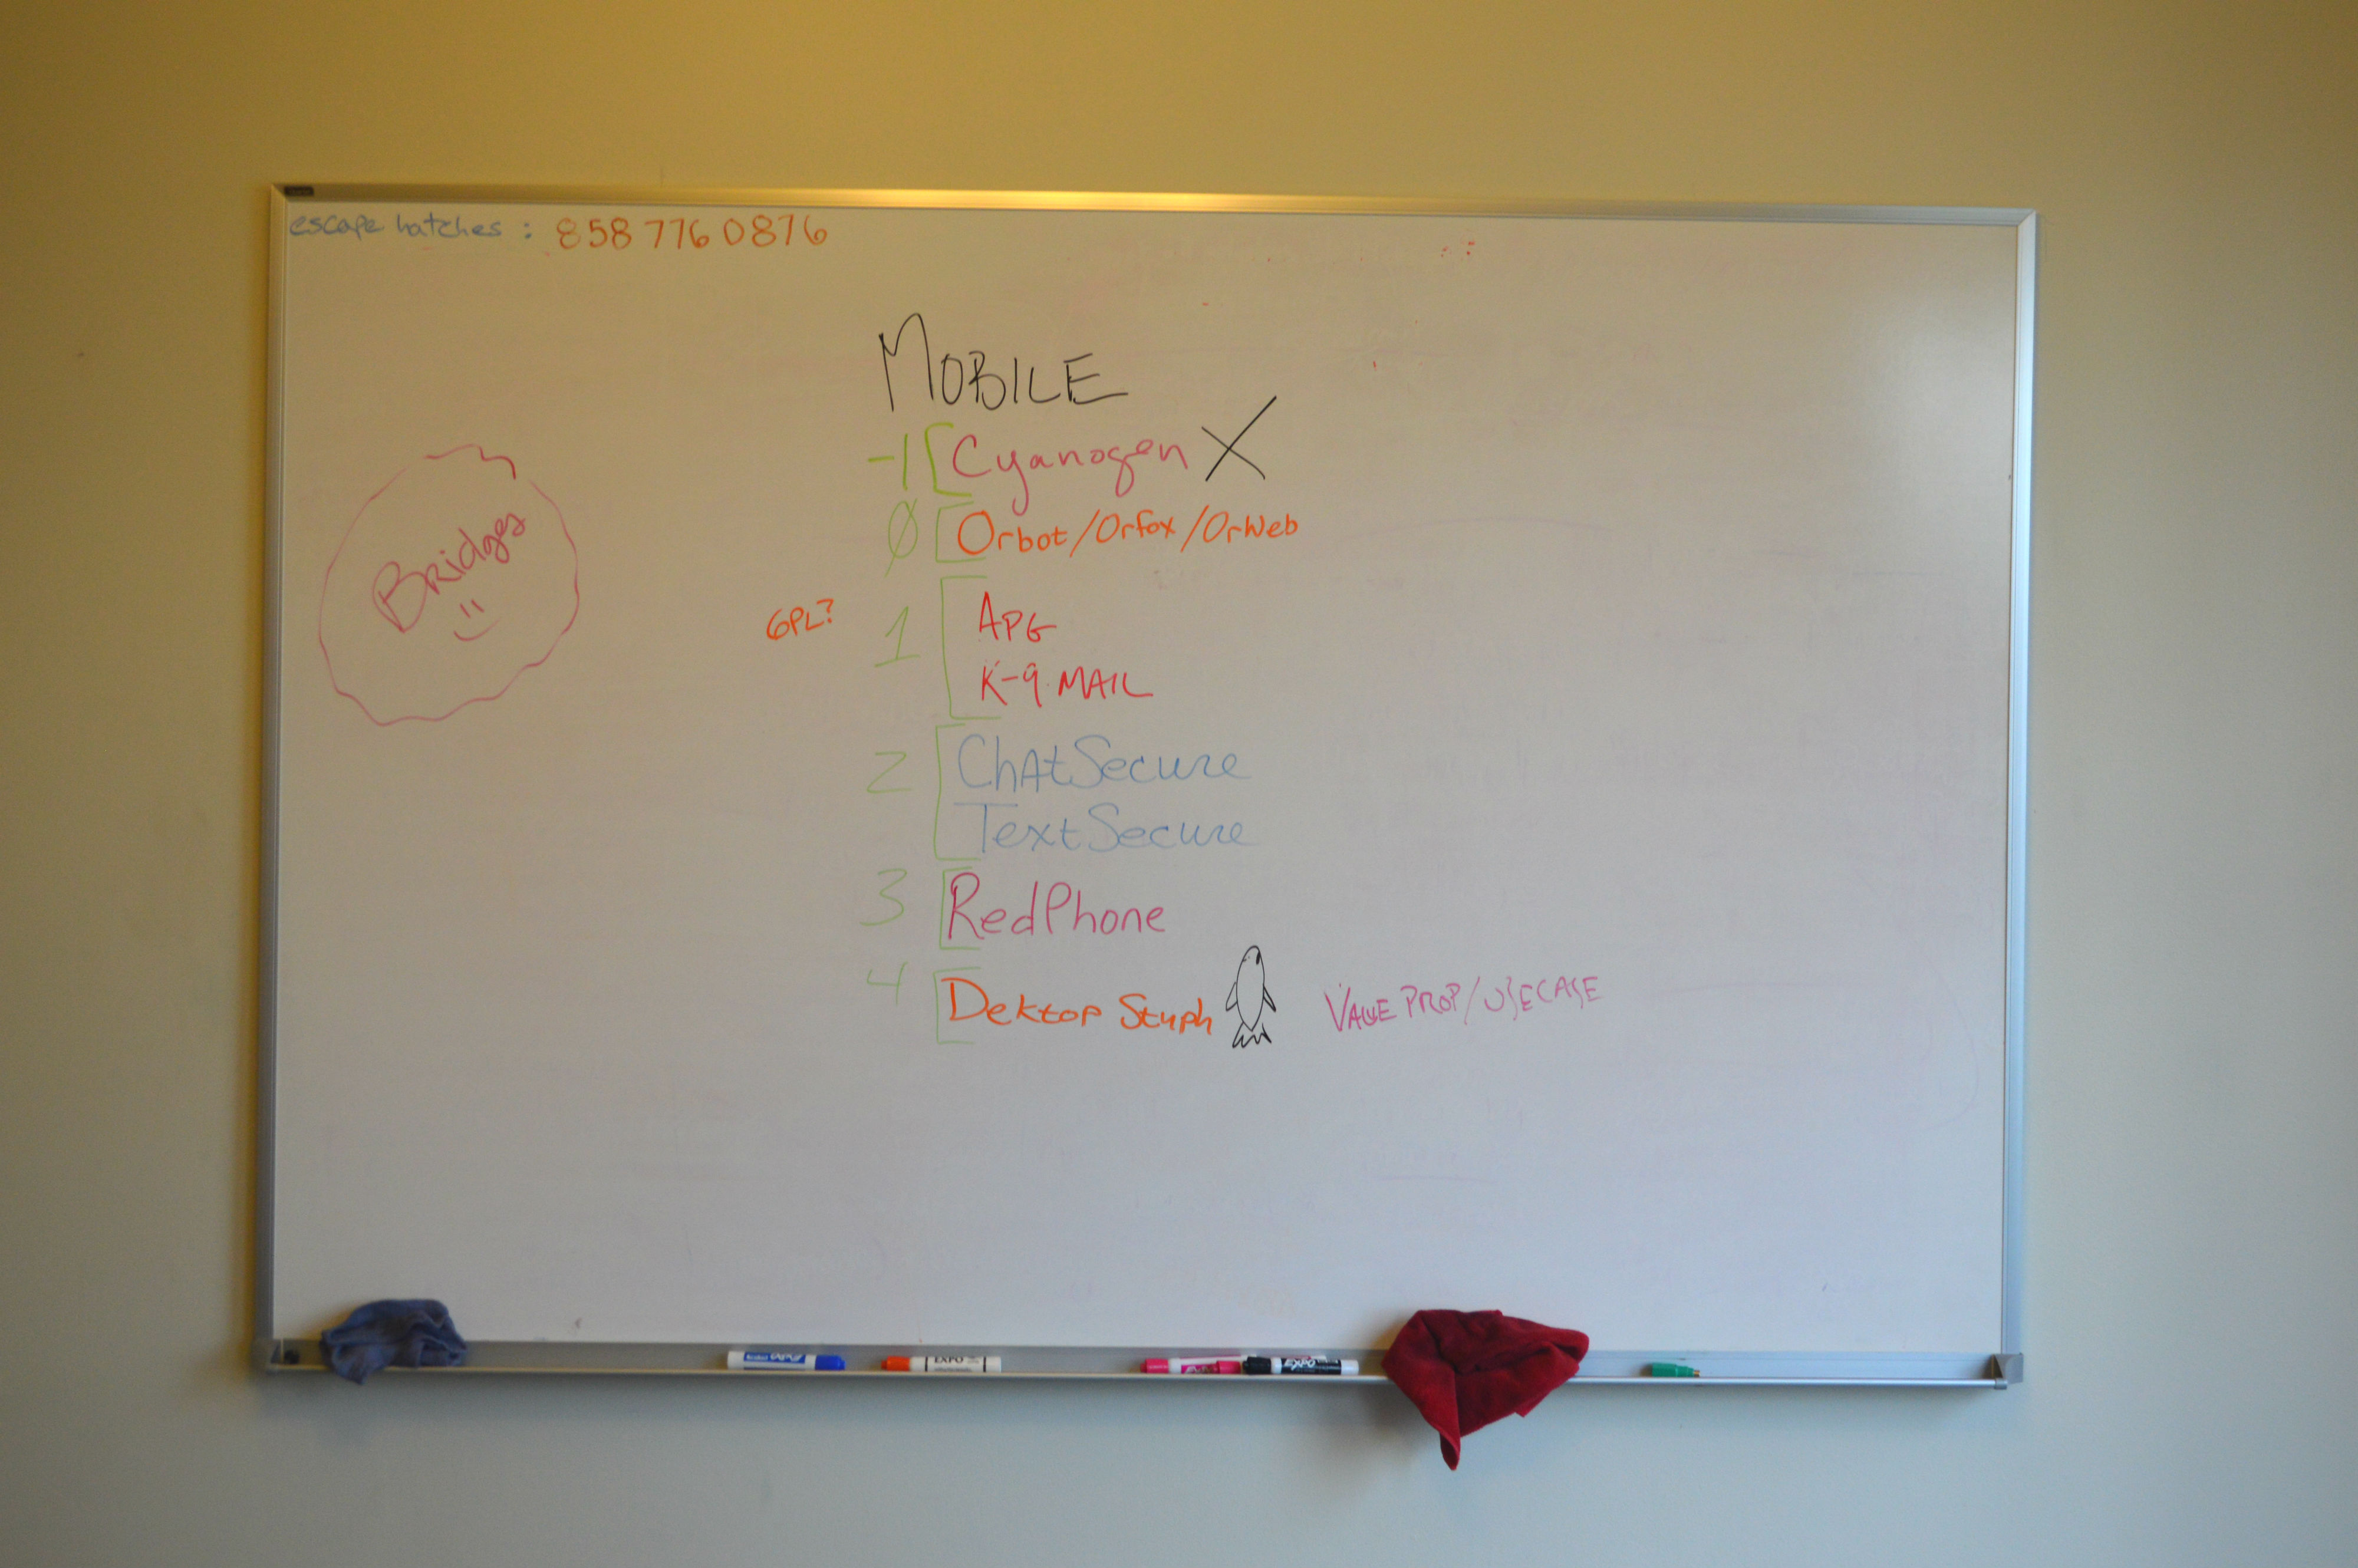 escape hatches : 858 776 0876
MOBILE
-1 [ Cyanogen X
Ø [ Orbot/Orfox/OrWeb
GPL? 1 [ APG
K-9 MAIL
2 [ ChatSecure
TextSecure
3 [ RedPhone
4 [ Dektop Stuph VALUE PROP/USECASE
Bridges
EXPO
EXPO